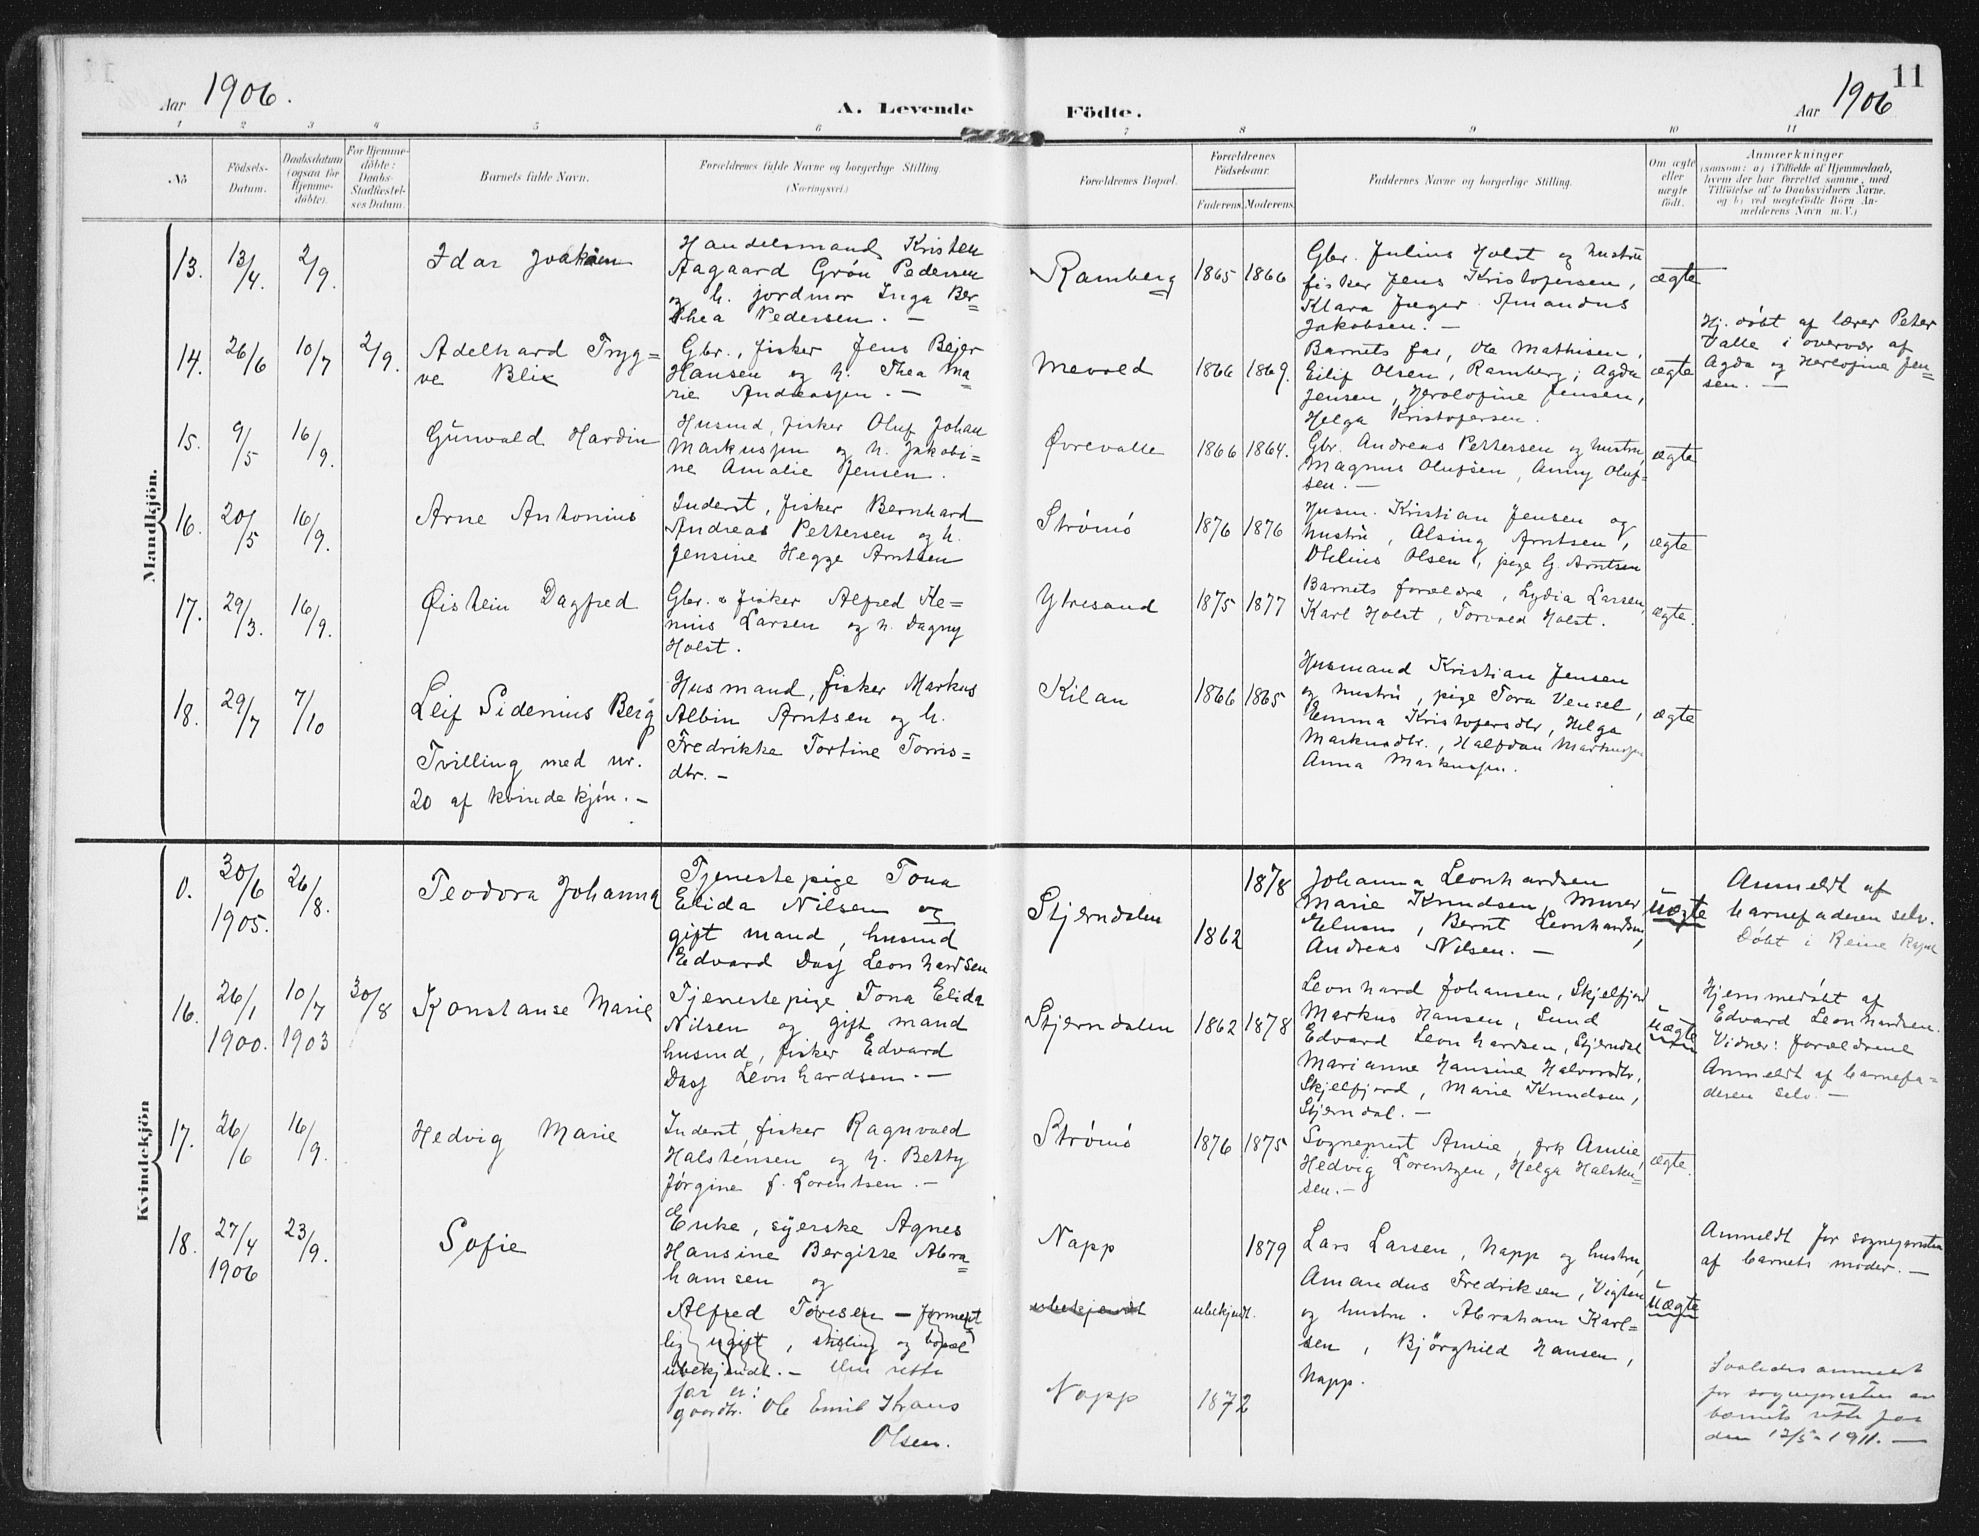 11
Aar 1906.
A. Levende Födte.
Aar 1906
1 2 3 4 5 6 7 8 9 10 11
No
Födsels-Datum.
Daabsdatum (ogsaa for Hjemme-döbte).
For Hjemme-döbte: Daabs-Stadfæstelses Datum.
Barnets fulde Navn.
Forældrenes fulde Navne og borgerlige Stilling. (Næringsvei.)
Forældrenes Bopæl.
Forældrenes Födselsaar.
Faderens. Moderens.
Faddernes Navne og borgerlige Stilling.
Om ægte eller uægte födt.
Anmærkninger
(saasom: a) i Tilfælde af Hjemmedaab,
hvem der har forrettet samme, med
Tilföielse af to Daabsvidners Navne.
og b) ved uægtefödte Börn An-
melderens Navn m. V.)
Mandkjön.
13. 13/4. 2/9.
Idar Joakim
Handelsmand Kristen
Aagaard Grön Pedersen
og h. jordmor Inga Ber=
thea Pedersen. —
Ramberg
1865 1866
Gbr. Julius Holst og hustru
fisker Jens Kristofersen,
Klara Jæger. Amandus
Jakobsen. —
ægte
14. 26/6 10/7 2/9.
Adelhard Tryg=
ve Blix
Gbr., fisker Jens Bejer
Hansen og h. Thea Ma=
rie Andreassen. —
Mevold
1866 1869.
Barnets far, Ole Mathisen,
Eilif Olsen, Ramberg; Agda
Jensen, Herolofine Jensen,
Helga Kristofersen.
ægte
Hj. döbt af lærer Peter
Valle i overvær af
Agda og Herlofine Jen=
sen. —
15. 9/5 16/9.
Gunvald Hardin
Husmd, fisker Oluf Johan
Markussen og h. Jakobi=
ne Amalie Jensen.
Øvrevalle
1866 1864.
Gbr. Andreas Pettersen og hustru,
Magnus Olufsen, Anny Oluf-
sen. —
ægte
16. 20/5 16/9.
Arne Antonius
Inderst, fisker Bernhard
Andreas Pettersen og h.
Jensine Hegge Arntsen
Strömö
1876 1876
Husm. Kristian Jensen og
hustru, Alsing Arntsen,
Olelius Olsen, pige G. Arntsen
ægte
17. 29/3. 16/9.
Øistein Dagfred
Gbr. & fisker Alfred Ke=
nius Larsen og h. Dagny
Holst.
Ytresand
1875 1877
Barnets forældre, Lydia Larsen,
Karl Holst, Torvald Holst.
ægte.
18. 29/7 7/10
Leif Sidenius Berg
Tvilling med nr.
20 af kvindekjön. —
Husmand, fisker Markus
Albin Arntsen og h.
Fredrikke Tortine Torris=
dtr. —
Kilan
1866 1865
Husmand Kristian Jensen
og hustru, pige Tora Vensel,
Emma Kristofersdtr, Helga
Markusdtr., Halfdan Markussen
Anna Markussen.
ægte
Kvindekjön
0. 30/6 1905. 26/8.
Teodora Johanna
Tjenestepige Tona
Elida Nilsen og
gift mand, husmd
Edvard Dasj Leonhardsen
Stjerndalen
1862 1878
Johanna Leonhardsen
Marie Knudsen, Murer
Bernt Leonhardsen,
Andreas Nilsen. —
uægte
Anmeldt af
barnefaderen selv.
Döbt i Reine
16. 26/1 1900. 10/7 1903 30/8
Konstanse Marie
Tjenestepige Tona Elida
Nilsen og gift mand
husmd, fisker Edvard
Dasj Leonhardsen. —
Stjerndalen
1862 1878
Leonhard Johansen, Skjelfjord
Markus Hansen, Sund
Edvard Leonhardsen, Stjerndal
Marianne Hansine Halvorsdtr,
Skjelfjord, Marie Knudsen,
Stjerndal. —
uægte
Hjemmedöbt af
Edvard Leonhardsen.
Vidner: forældrene
Anmeldt af barnefa=
deren selv. —
17. 26/6 16/9.
Hedvig Marie
Inderst, fisker Ragnvald
Halstensen og h. Betty
Jørgine f. Lorentsen. —
Strömö
1876 1875
Sogneprest Amlie, frk Amlie,
Hedvig Lorentzen, Helga Halsten=
sen. —
ægte.
18. 27/4 1906 23/9.
Sofie
Enke, syerske Agnes
Hansine Bergitte Abra=
hamsen og
Alfred Toresen — forment=
lig ugift, stilling og bopæl
ubekjendt. — Den rette
far er:
gaardbr. Ole Emil Krans
Olsen.
Napp
ubekjendt
Napp
1879
ubekjendt.
1872
Lars Larsen, Napp og hustru,
Amandus Fredriksen, Vigten
og hustru. Abraham Karl=
sen, Bjørghild Hansen,
Napp.
uægte
Anmeldt for sognepresten
af barnets moder. —
Saaledes anmeldt
for sognepresten av
barnets rette far
den 12/5-1911. —